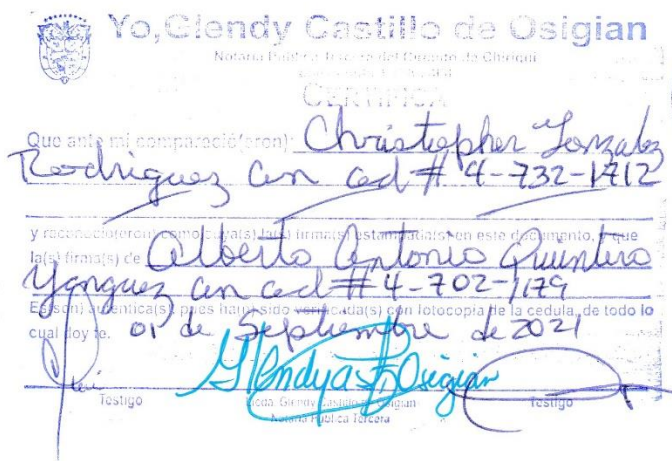 Yo, Glendy Castillo de Osigian
Notaria Pública Tercera del Circuito de Chiriquí
CERTIFICA
Que ante mi compareció(eron): Christopher Gonzalez
Rodriguez con ced # 4-732-1712
y reconoció(eron) como suya(s) la(s) firma(s) estampada(s) en este documento, y que
la(s) firma(s) de Alberto Antonio Quintero
Yanguez con ced # 4-702-1179
Es(son) autentica(s), pues ha(n) sido verificada(s) con fotocopia de la cedula, de todo lo
cual doy fe. 01 de Septiembre de 2021
Glendy Osigian
Testigo
Licda. Glendy Castillo de Osigian
Testigo
Notaria Pública Tercera